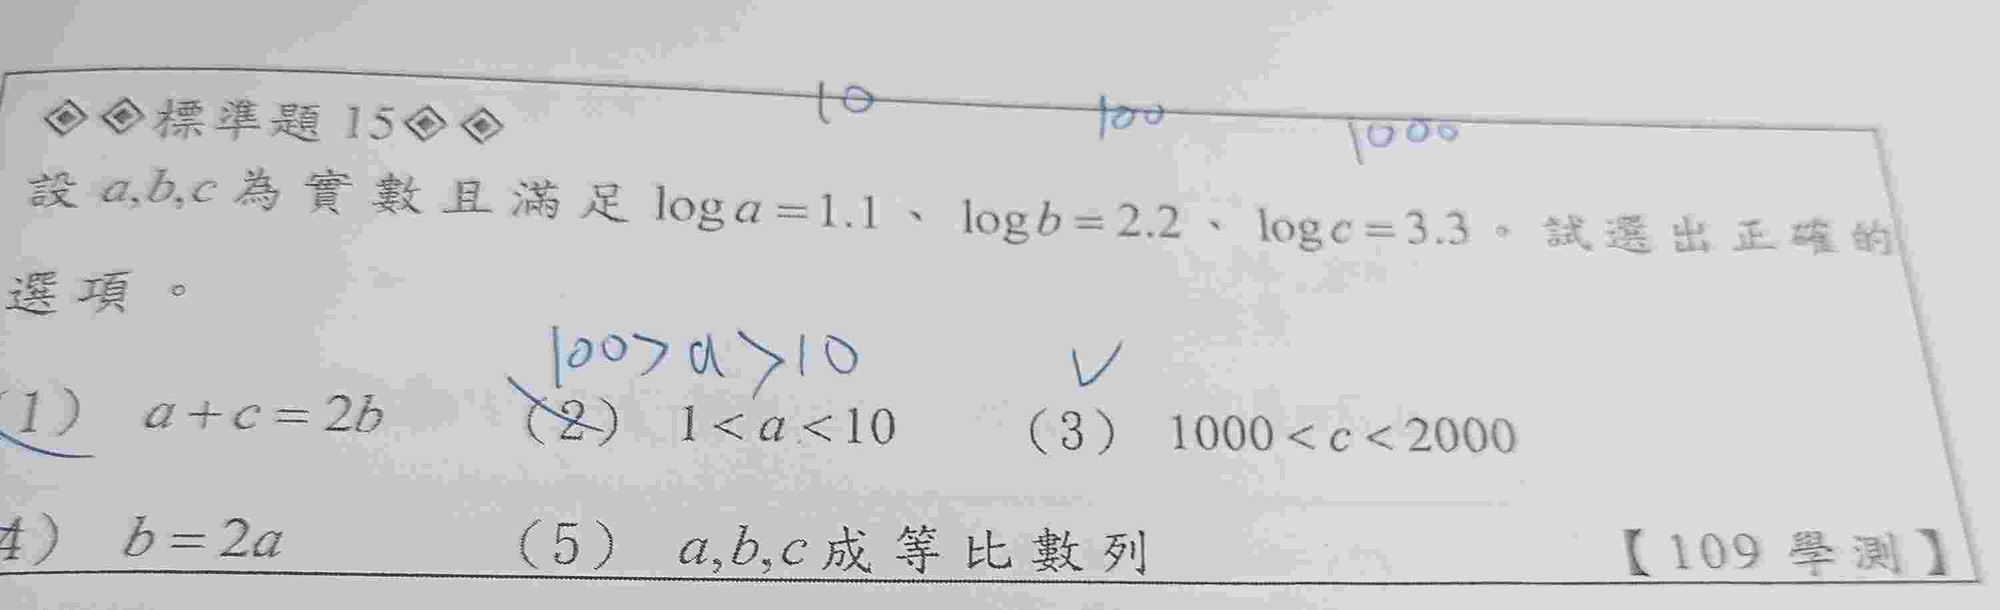 10 100 1000
◈◈標準題 15◈◈
設 a,b,c 為實數且滿足 log a = 1.1、log b = 2.2、log c = 3.3。試選出正確的
選項。
100 > a > 10 ✓
1) a + c = 2b (2) 1 < a < 10 (3) 1000 < c < 2000
4) b = 2a (5) a,b,c 成等比數列 【109 學測】